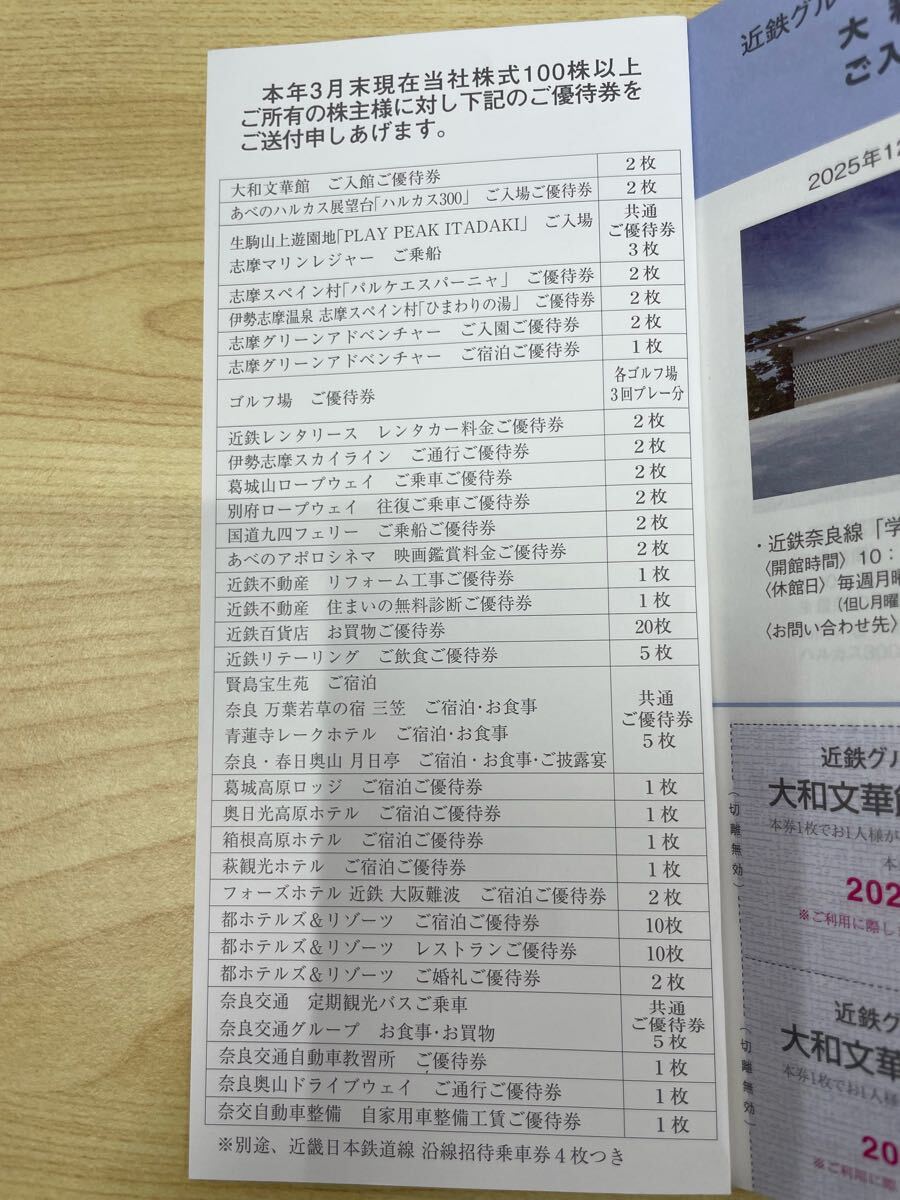 本年3月末現在当社株式100株以上
ご所有の株主様に対し下記のご優待券を
ご送付申しあげます。
大和文華館 ご入館ご優待券 2枚
あべのハルカス展望台「ハルカス300」 ご入場ご優待券 2枚
生駒山上遊園地「PLAY PEAK ITADAKI」 ご入場
志摩マリンレジャー ご乗船
共通
ご優待券
3枚
志摩スペイン村「パルケエスパーニャ」 ご優待券 2枚
伊勢志摩温泉 志摩スペイン村「ひまわりの湯」 ご優待券 2枚
志摩グリーンアドベンチャー ご入園ご優待券 2枚
志摩グリーンアドベンチャー ご宿泊ご優待券 1枚
ゴルフ場 ご優待券
各ゴルフ場
3回プレー分
近鉄レンタリース レンタカー料金ご優待券 2枚
伊勢志摩スカイライン ご通行ご優待券 2枚
葛城山ロープウェイ ご乗車ご優待券 2枚
別府ロープウェイ 往復ご乗車ご優待券 2枚
国道九四フェリー ご乗船ご優待券 2枚
あべのアポロシネマ 映画鑑賞料金ご優待券 2枚
近鉄不動産 リフォーム工事ご優待券 1枚
近鉄不動産 住まいの無料診断ご優待券 1枚
近鉄百貨店 お買物ご優待券 20枚
近鉄リテーリング ご飲食ご優待券 5枚
賢島宝生苑 ご宿泊
奈良 万葉若草の宿 三笠 ご宿泊・お食事
青蓮寺レークホテル ご宿泊・お食事
奈良・春日奥山 月日亭 ご宿泊・お食事・ご披露宴
共通
ご優待券
5枚
葛城高原ロッジ ご宿泊ご優待券 1枚
奥日光高原ホテル ご宿泊ご優待券 1枚
箱根高原ホテル ご宿泊ご優待券 1枚
萩観光ホテル ご宿泊ご優待券 1枚
フォーズホテル 近鉄 大阪難波 ご宿泊ご優待券 2枚
都ホテルズ&リゾーツ ご宿泊ご優待券 10枚
都ホテルズ&リゾーツ レストランご優待券 10枚
都ホテルズ&リゾーツ ご婚礼ご優待券 2枚
奈良交通 定期観光バスご乗車
奈良交通グループ お食事・お買物
共通
ご優待券
5枚
奈良交通自動車教習所 ご優待券 1枚
奈良奥山ドライブウェイ ご通行ご優待券 1枚
奈交自動車整備 自家用車整備工賃ご優待券 1枚
※別途、近畿日本鉄道線 沿線招待乗車券4枚つき
近鉄グル
大
ご入
2025年12
・近鉄奈良線「学
〈開館時間〉10：
〈休館日〉毎週月曜
(但し月曜
〈お問い合わせ先〉
近鉄グル
大和文華館
本券1枚でお1人様が
本
202
※ご利用に際し
(切離無効)
近鉄グ
大和文華
本券1枚でお1人様
20
※ご利用に際
(切離無効)